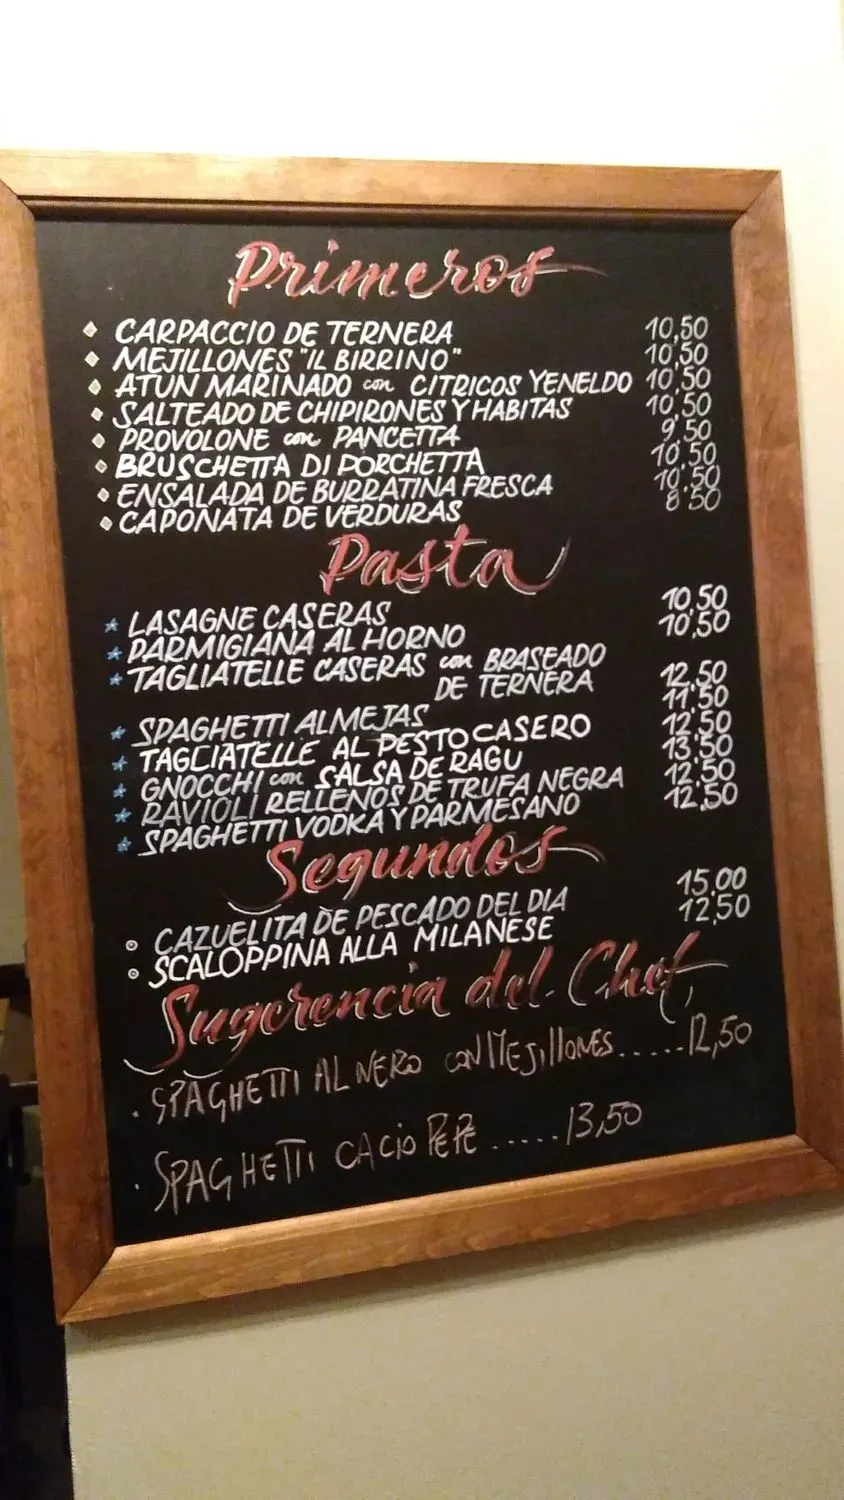 Primeros
CARPACCIO DE TERNERA 10,50
MEJILLONES "IL BIRRINO" 10,50
ATUN MARINADO con CITRICOS YENELDO 10,50
SALTEADO DE CHIPIRONES Y HABITAS 10,50
PROVOLONE con PANCETTA 9,50
BRUSCHETTA DI PORCHETTA 10,50
ENSALADA DE BURRATINA FRESCA 10,50
CAPONATA DE VERDURAS 8,50
Pasta
LASAGNE CASERAS 10,50
PARMIGIANA AL HORNO 10,50
TAGLIATELLE CASERAS con BRASEADO
DE TERNERA 12,50
SPAGHETTI ALMEJAS 11,50
TAGLIATELLE AL PESTO CASERO 12,50
GNOCCHI con SALSA DE RAGU 13,50
RAVIOLI RELLENOS DE TRUFA NEGRA 12,50
SPAGHETTI VODKA Y PARMESANO 12,50
Segundos
CAZUELITA DE PESCADO DEL DIA 15,00
SCALOPPINA ALLA MILANESE 12,50
Sugerencia del Chef
SPAGHETTI AL NERO CON MEJILLONES.....12,50
SPAGHETTI CACIO PEPE.....13,50